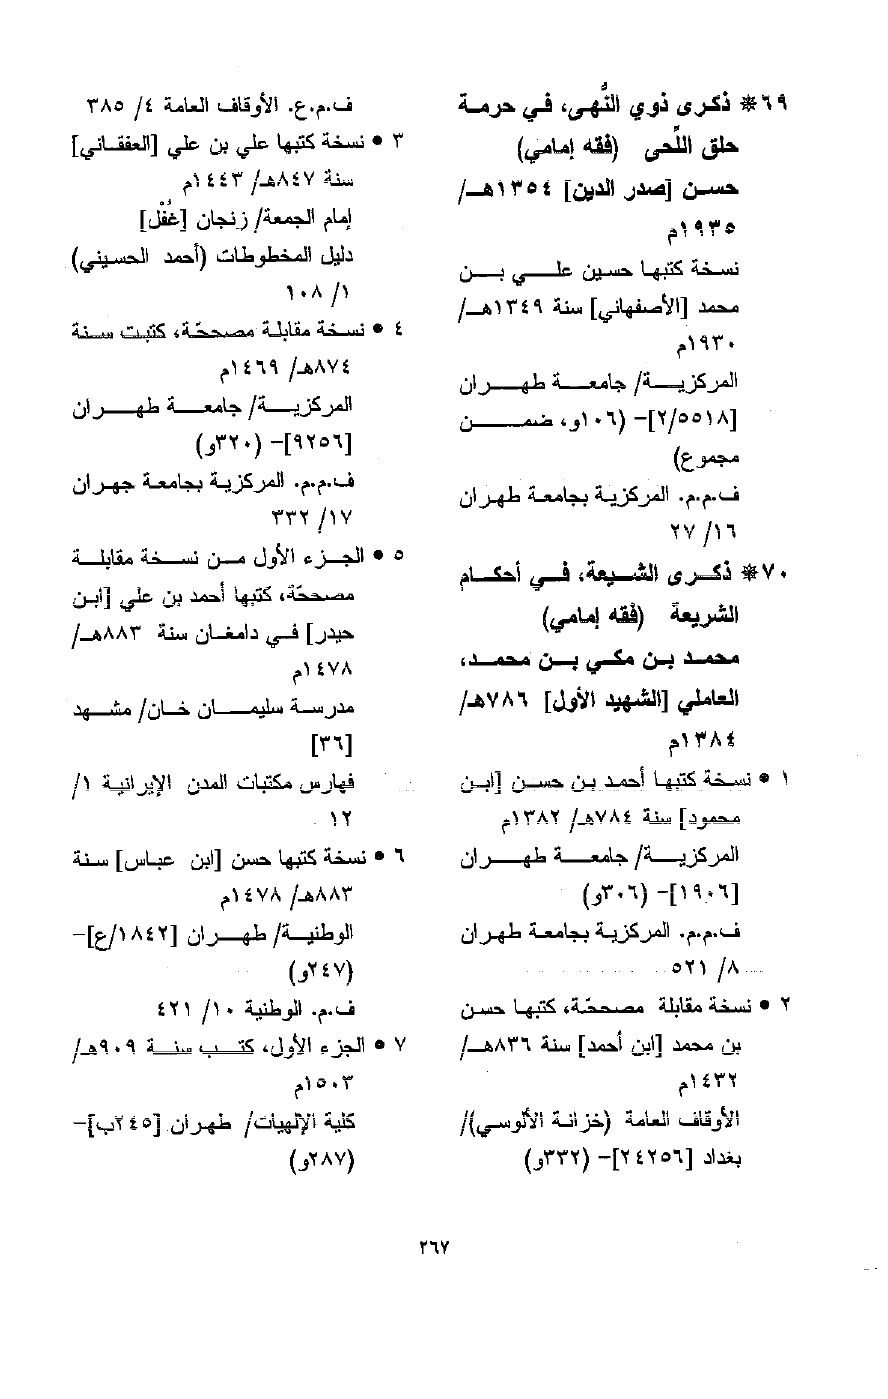 ٦٩* ذكرى ذوي النُّهى، في حرمة
حلق اللِّحى (فقه إمامي)
حسن [صدر الدين] ١٣٥٤هـ/
١٩٣٥م
نسخة كتبها حسين علي بن
محمد [الأصفهاني] سنة ١٣٤٩هـ/
١٩٣٠م
المركزية/ جامعة طهران
[٢/٥٥١٨]- (١٠٦و، ضمن
مجموع)
ف.م.م. المركزية بجامعة طهران
١٦/ ٢٧
٧٠* ذكرى الشيعة، في أحكام
الشريعة (فقه إمامي)
محمد بن مكي بن محمد،
العاملي [الشهيد الأول] ٧٨٦هـ/
١٣٨٤م
١ • نسخة كتبها أحمد بن حسن [ابن
محمود] سنة ٧٨٤هـ/ ١٣٨٢م
المركزية/ جامعة طهران
[١٩٠٦]- (٣٠٦و)
ف.م.م. المركزية بجامعة طهران
٨/ ٥٢١
٢ • نسخة مقابلة مصححّة، كتبها حسن
بن محمد [ابن أحمد] سنة ٨٣٦هـ/
١٤٣٢م
الأوقاف العامة (خزانة الألوسي)/
بغداد [٢٤٢٥٦]- (٣٣٢و)
ف.م.ع. الأوقاف العامة ٤/ ٣٨٥
٣ • نسخة كتبها علي بن علي [العفقاني]
سنة ٨٤٧هـ/ ١٤٤٣م
إمام الجمعة/ زنجان [غُفْل]
دليل المخطوطات (أحمد الحسيني)
١/ ١٠٨
٤ • نسخة مقابلة مصححّة، كتبت سنة
٨٧٤هـ/ ١٤٦٩م
المركزية/ جامعة طهران
[٩٢٥٦]- (٣٢٠و)
ف.م.م. المركزية بجامعة جهران
١٧/ ٣٣٢
٥ • الجزء الأول من نسخة مقابلة
مصححّة، كتبها أحمد بن علي [ابن
حيدر] في دامغان سنة ٨٨٣هـ/
١٤٧٨م
مدرسة سليمان خان/ مشهد
[٣٦]
فهارس مكتبات المدن الإيرانية ١/
١٢
٦ • نسخة كتبها حسن [ابن عباس] سنة
٨٨٣هـ/ ١٤٧٨م
الوطنية/ طهران [١٨٤٢/ع]-
(٢٤٧و)
ف.م. الوطنية ١٠/ ٤٢١
٧ • الجزء الأول، كتب سنة ٩٠٩هـ/
١٥٠٣م
كلية الإلهيات/ طهران [٢٤٥ب]-
(٢٨٧و)
٢٦٧